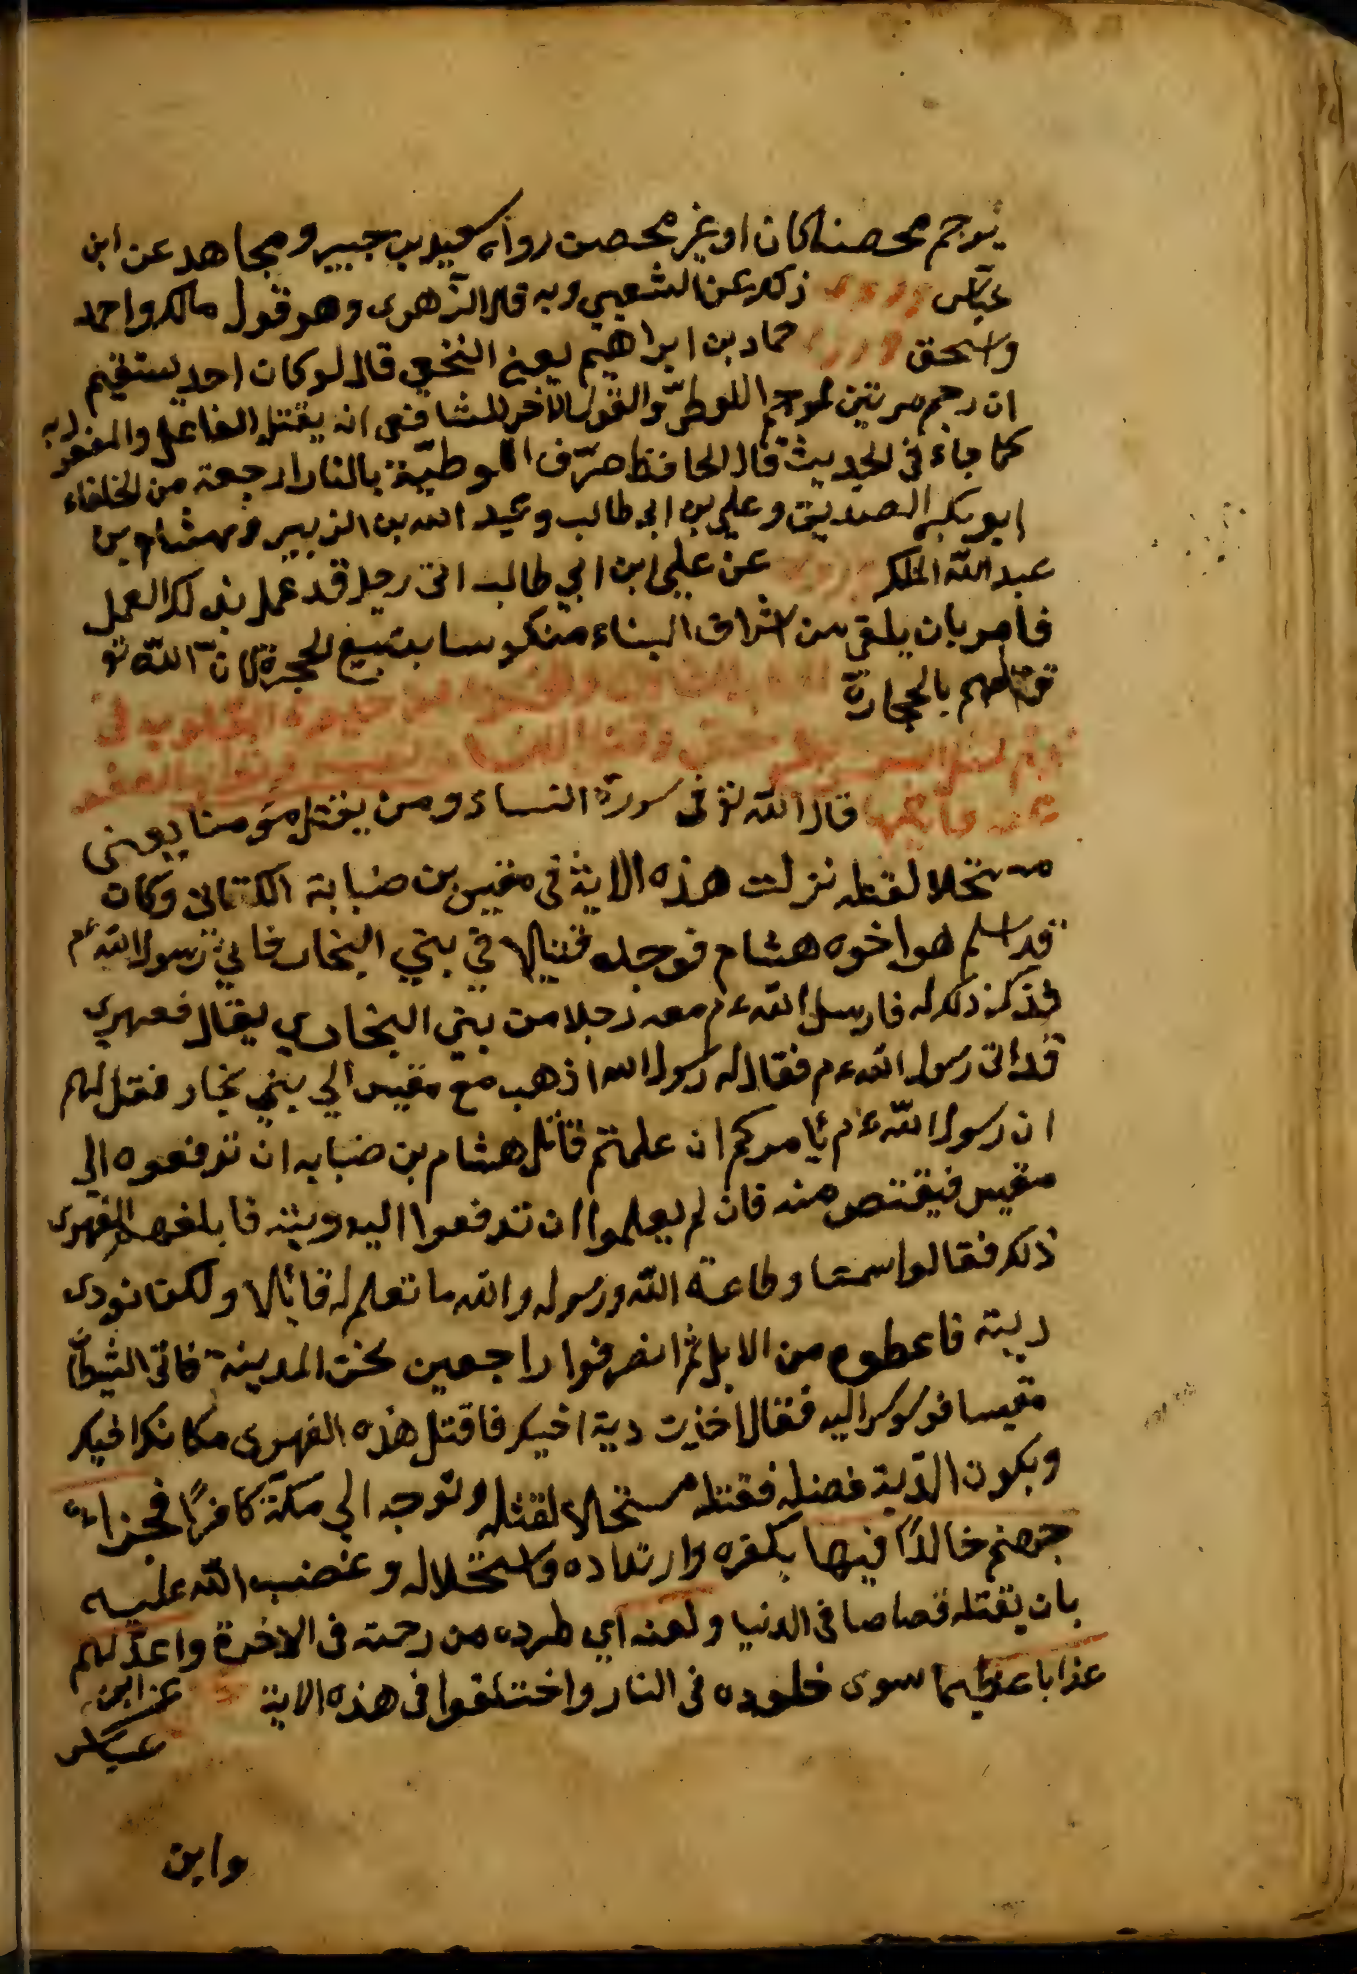 يرجم محصنا كان او غير محصن رواه سعيد بن جبير ومجاهد عن ابن
عباس وروى ذلك عن الشعبي وبه قال الزهرى وهو قول مالك واحمد
واسحق وروى حماد بن ابراهيم يعنى النخعى قال لو كان احد يستقيم
ان رجم مرتين لرجم اللوطى والقول الآخر للشافعى انه يقتل الفاعل والمفعول به
كما جاء فى الحديث قال الحافظ حرّق اللوطية بالنار اربعة من الخلفاء
ابو بكر الصديق وعلى بن ابى طالب وعبد الله بن الزبير وهشام بن
عبد الملك وروى عن على ابن ابي طالب اتى رجل قد عمل بذلك العمل
فامر بان يلقى من اشراف البناء منكوسا يتبع الحجرة لان الله تع
قتلهم بالحجارة
قال الله تع فى سورة النساء ومن يقتل مؤمنا يعنى
مستحلا لقتله نزلت هذه الاية فى مقيس بن ضبابة الكنانى وكان
قد اسلم هو اخوه هشام فوجده قتيلا في بني النجار فاتي رسول الله ءم
فذكر ذلك له فارسل الله ءم معه رجلا من بني النجاري يقال فعهري
قد اتى رسول الله ءم فقال له رسول الله اذهب مع مقيس الي بني نجار فقل لهم
ان رسول الله ءم يامركم ان علمتم قاتل هشام بن ضبابه ان تدفعوه الي
مقيس فيقتص منه فان لم يعلموا ان تدفعوا اليه ديته فابلغهم الفهرى
ذلك فقالوا سمعا وطاعة الله ورسوله والله ما تعلم له قاتلا ولكنا نودى
ديته فاعطوه من الابل ثم انصرفوا راجعين نحو المدينة فاتى الشيطان
مقيسا فوسوس اليه فقال اخذت دية اخيك فاقتل هذه الفهرى مكان اخيك
ويكون الدية فضله فقتله مستحلا لقتله وتوجه الى مكة كافرًا فجزاءه
جهنم خالدًا فيها بكفره وارتداده واستحلاله وغضب الله عليه
بان يقتله قصاصا فى الدنيا ولعنه اي طرده من رحمته فى الاخرة واعد لهم
عذابا عظيما سوى خلوده فى النار واختلفوا فى هذه الاية عن ابن
عباس
وابن